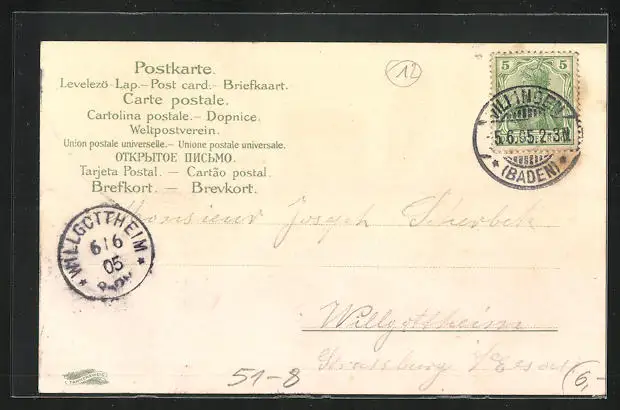 Postkarte.
Levelező-Lap.—Post card.—Briefkaart.
Carte postale.
Cartolina postale.—Dopnice.
Weltpostverein.
Union postale universelle.—Unione postale universale.
ОТКРЫТОЕ ПИСЬМО.
Tarjeta Postal.—Cartão postal.
Brefkort.—Brevkort.
12
5 5
VILLINGEN
5.6.05.2-3N.
* (BADEN) *
* WILLGOTTHEIM *
6 6
05
Monsieur Joseph
Willgottheim
Strassburg
51-8
6,-